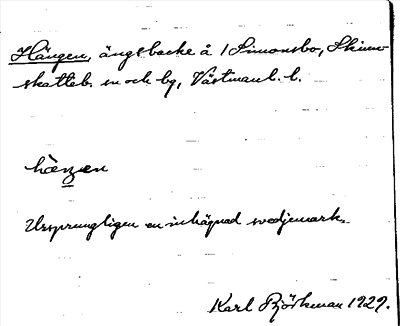 Hängen, ängsbacke å 1 Simonsbo, Skinn-
skatteb. sn och by, Västmanl. l.
hèŋen
Ursprungligen en inhägnad svedjemark.
Karl Björkman 1929.